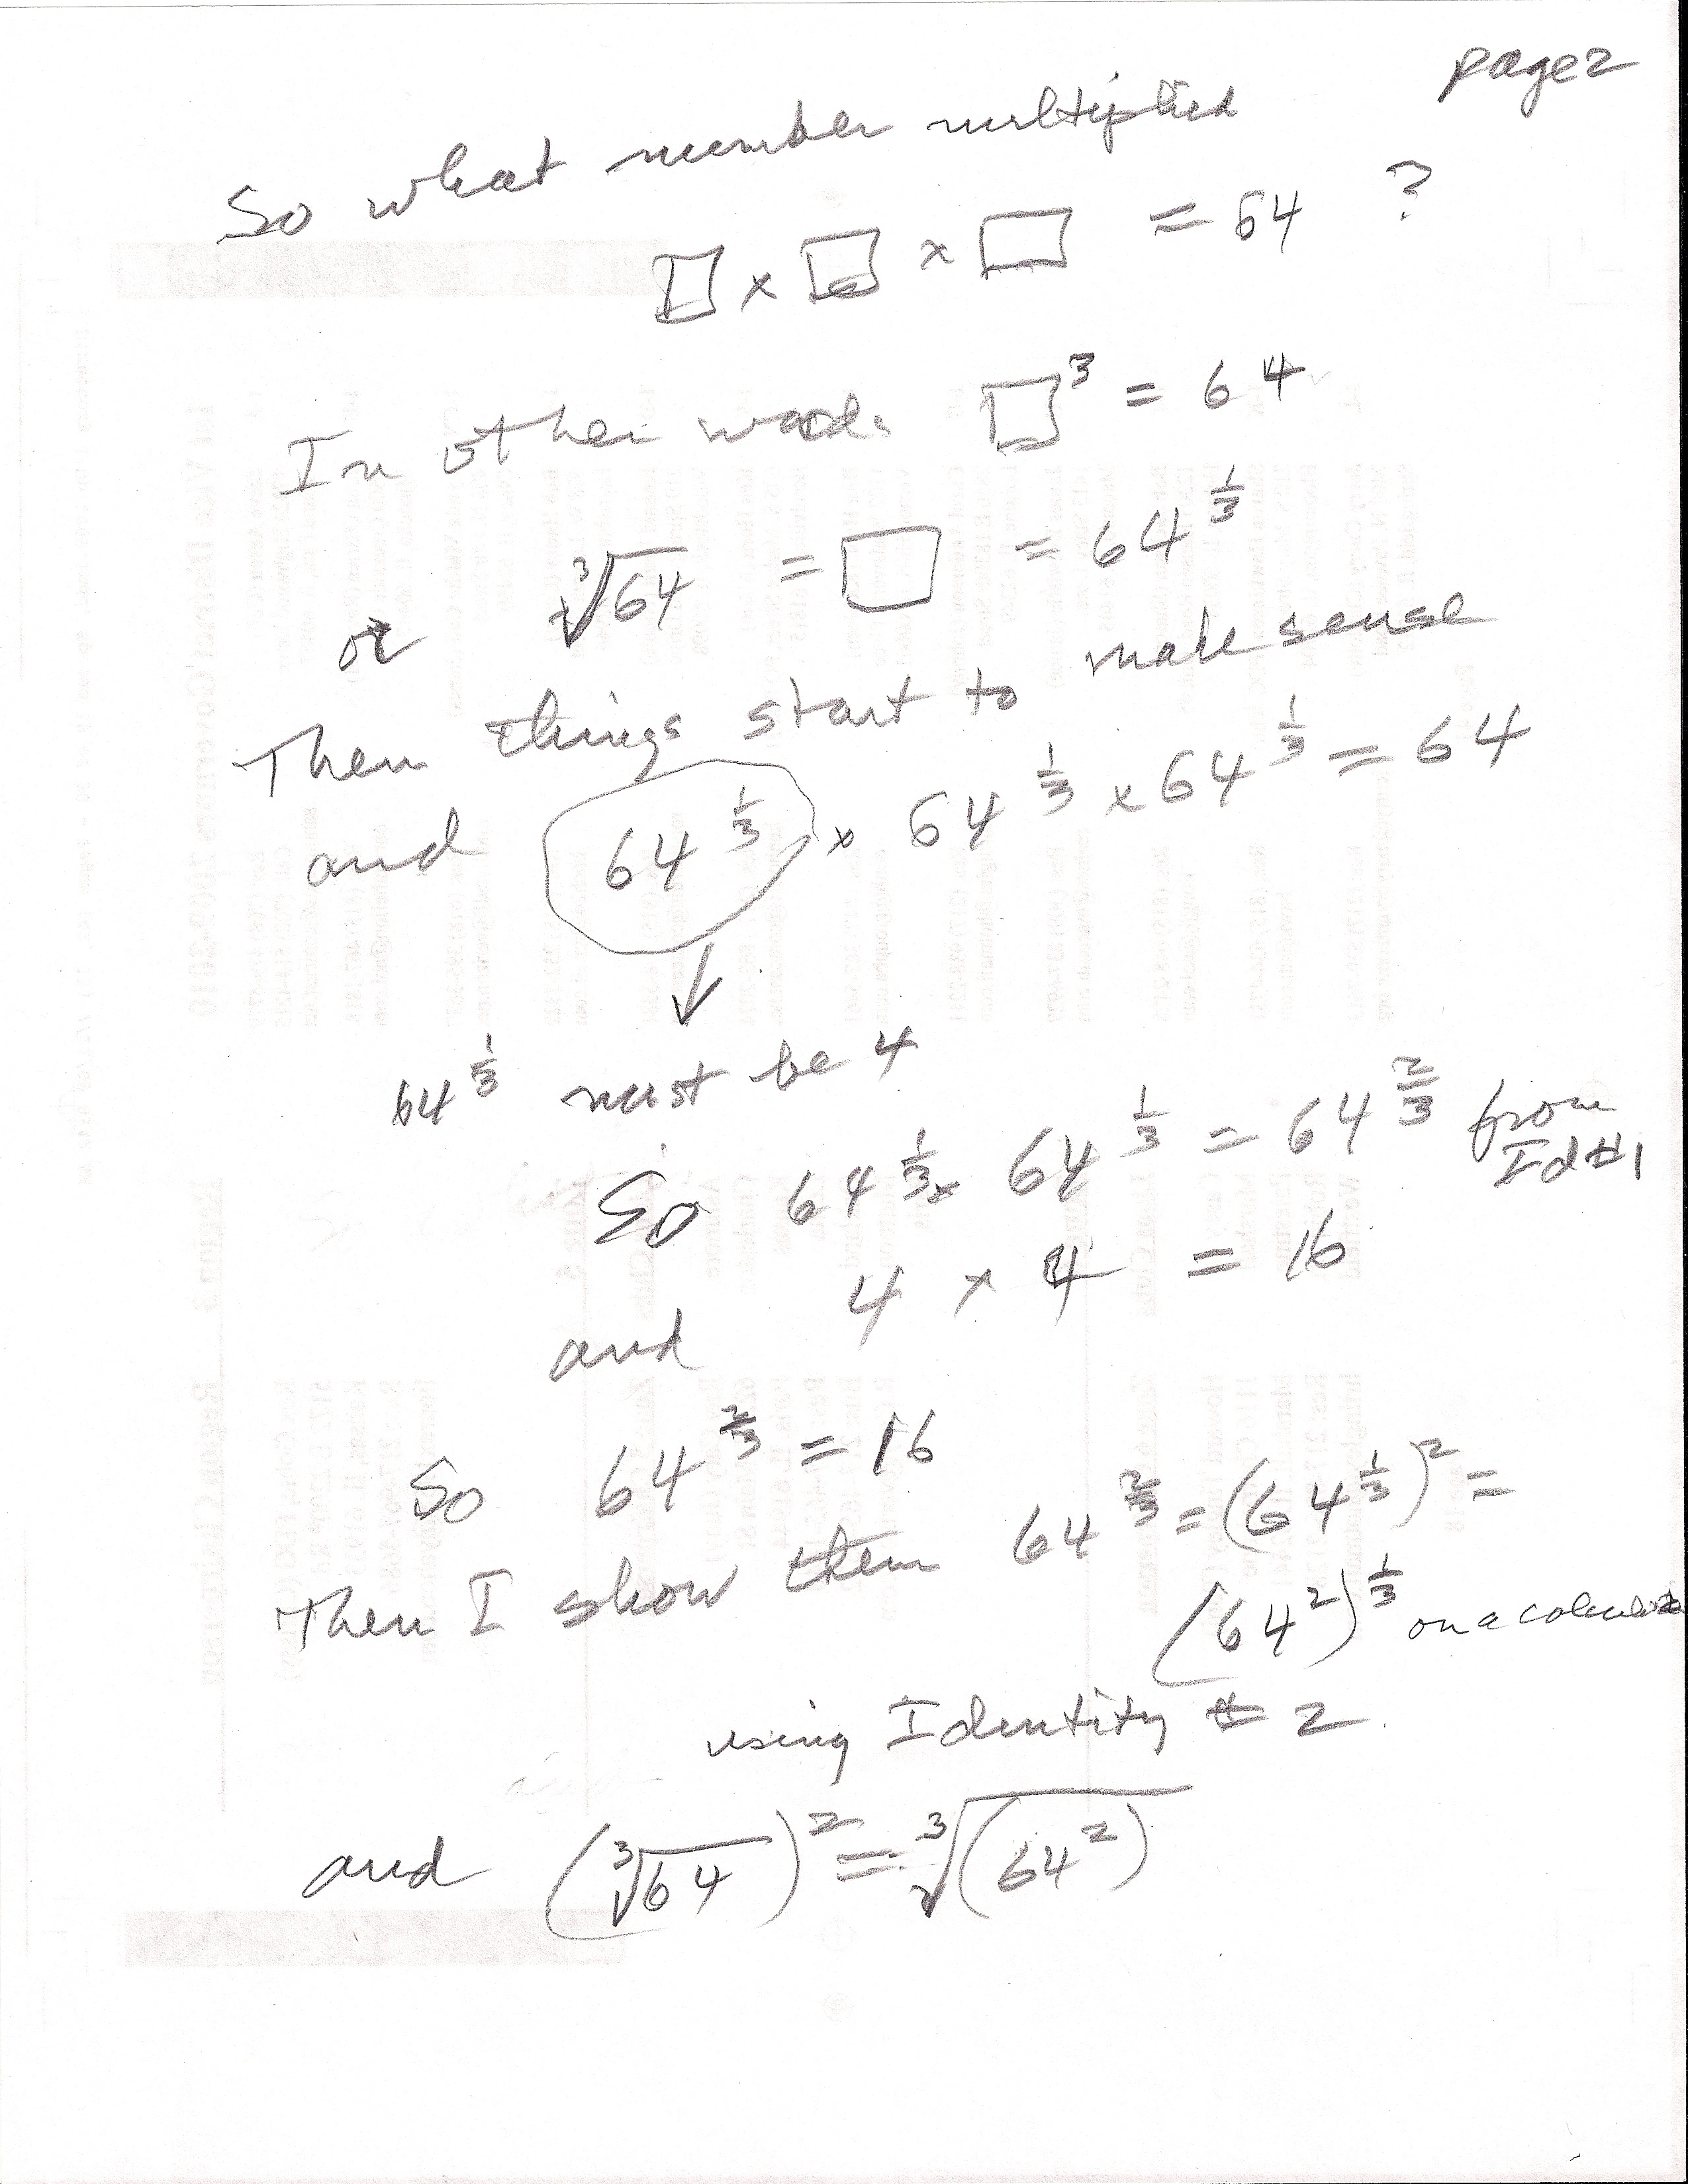 page 2
So what number multiplied
□ × □ × □ = 64 ?
In other words □³ = 64
or ∛64 = □ = 64^(1/3)
Then things start to make sense
and 64^(1/3) × 64^(1/3) × 64^(1/3) = 64
64^(1/3) must be 4
So 64^(1/3) × 64^(1/3) = 64^(2/3) from Id #1
and 4 × 4 = 16
So 64^(2/3) = 16
Then I show them 64^(2/3) = (64^(1/3))² =
(64²)^(1/3) on a calculator
using Identity # 2.
and (∛64)² = ∛(64²)